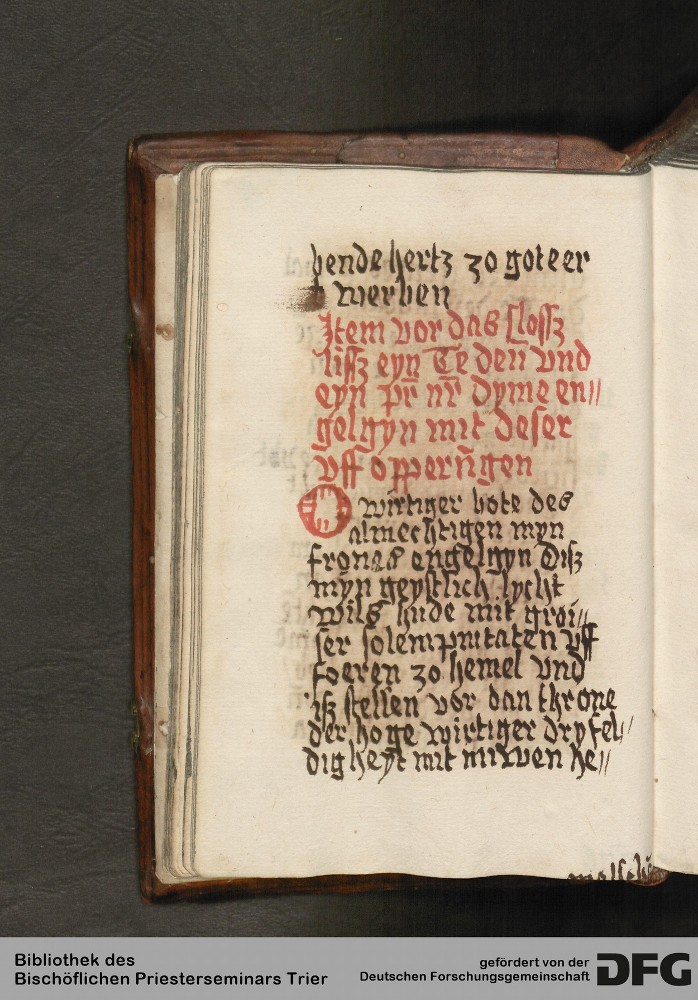 bende hertz zo gote er
werben
Item vor das Slossz
lissz eyn Te deu vnd
eyn pr nr dyme en//
gelgyn mit deser
vff opperngen
O wirtiger bote des
almechtigen myn
fronas engelgyn Disz
myn geystlich lycht
wils hude mit groi//
ser solempnitaten vff
foeren zo hemel vnd
isz stellen vor dan throne
der hoge wirtiger dryfel//
digheyt mit nuwen he//
Bibliothek des
Bischöflichen Priesterseminars Trier
gefördert von der
Deutschen Forschungsgemeinschaft
DFG